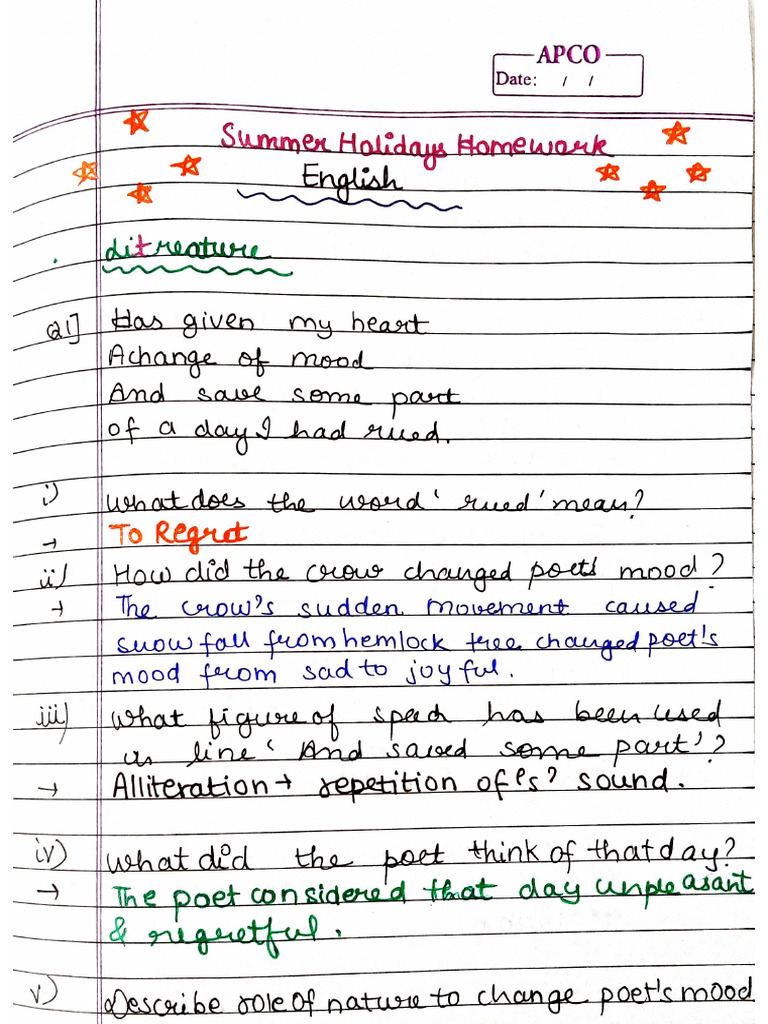 APCO
Date: / /
Summer Holidays Homework
English
Litreature
Q1] Has given my heart
A change of mood
And save some part
of a day I had rued.
i) What does the word ' rued' mean?
→ To Regret
ii) How did the crow changed poet's mood?
→ The crow's sudden movement caused
snow fall from hemlock tree changed poet's
mood from sad to joyful.
iii) What figure of speech has been used
in line ' And saved some part'?
→ Alliteration → repetition of 's' sound.
iv) What did the poet think of that day?
→ The poet considered that day unpleasant
& regretful.
v) Describe role of nature to change poet's mood